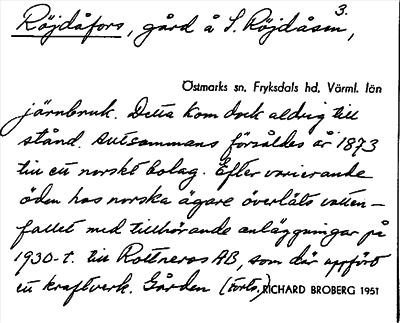 Röjdåfors, gård å S. Röjdåsen 3.,
Östmarks sn. Fryksdals hd. Värml. län
järnbruk. Detta kom dock aldrig till
stånd. Alltsammans försåldes år 1873
till ett norskt bolag. Efter varierande
öden hos norska ägare överläts vatten-
fallet med tillhörande anläggningar på
1930-t. till Rottneros AB, som där uppfört
ett kraftverk. Gården (forts.)
RICHARD BROBERG 1951